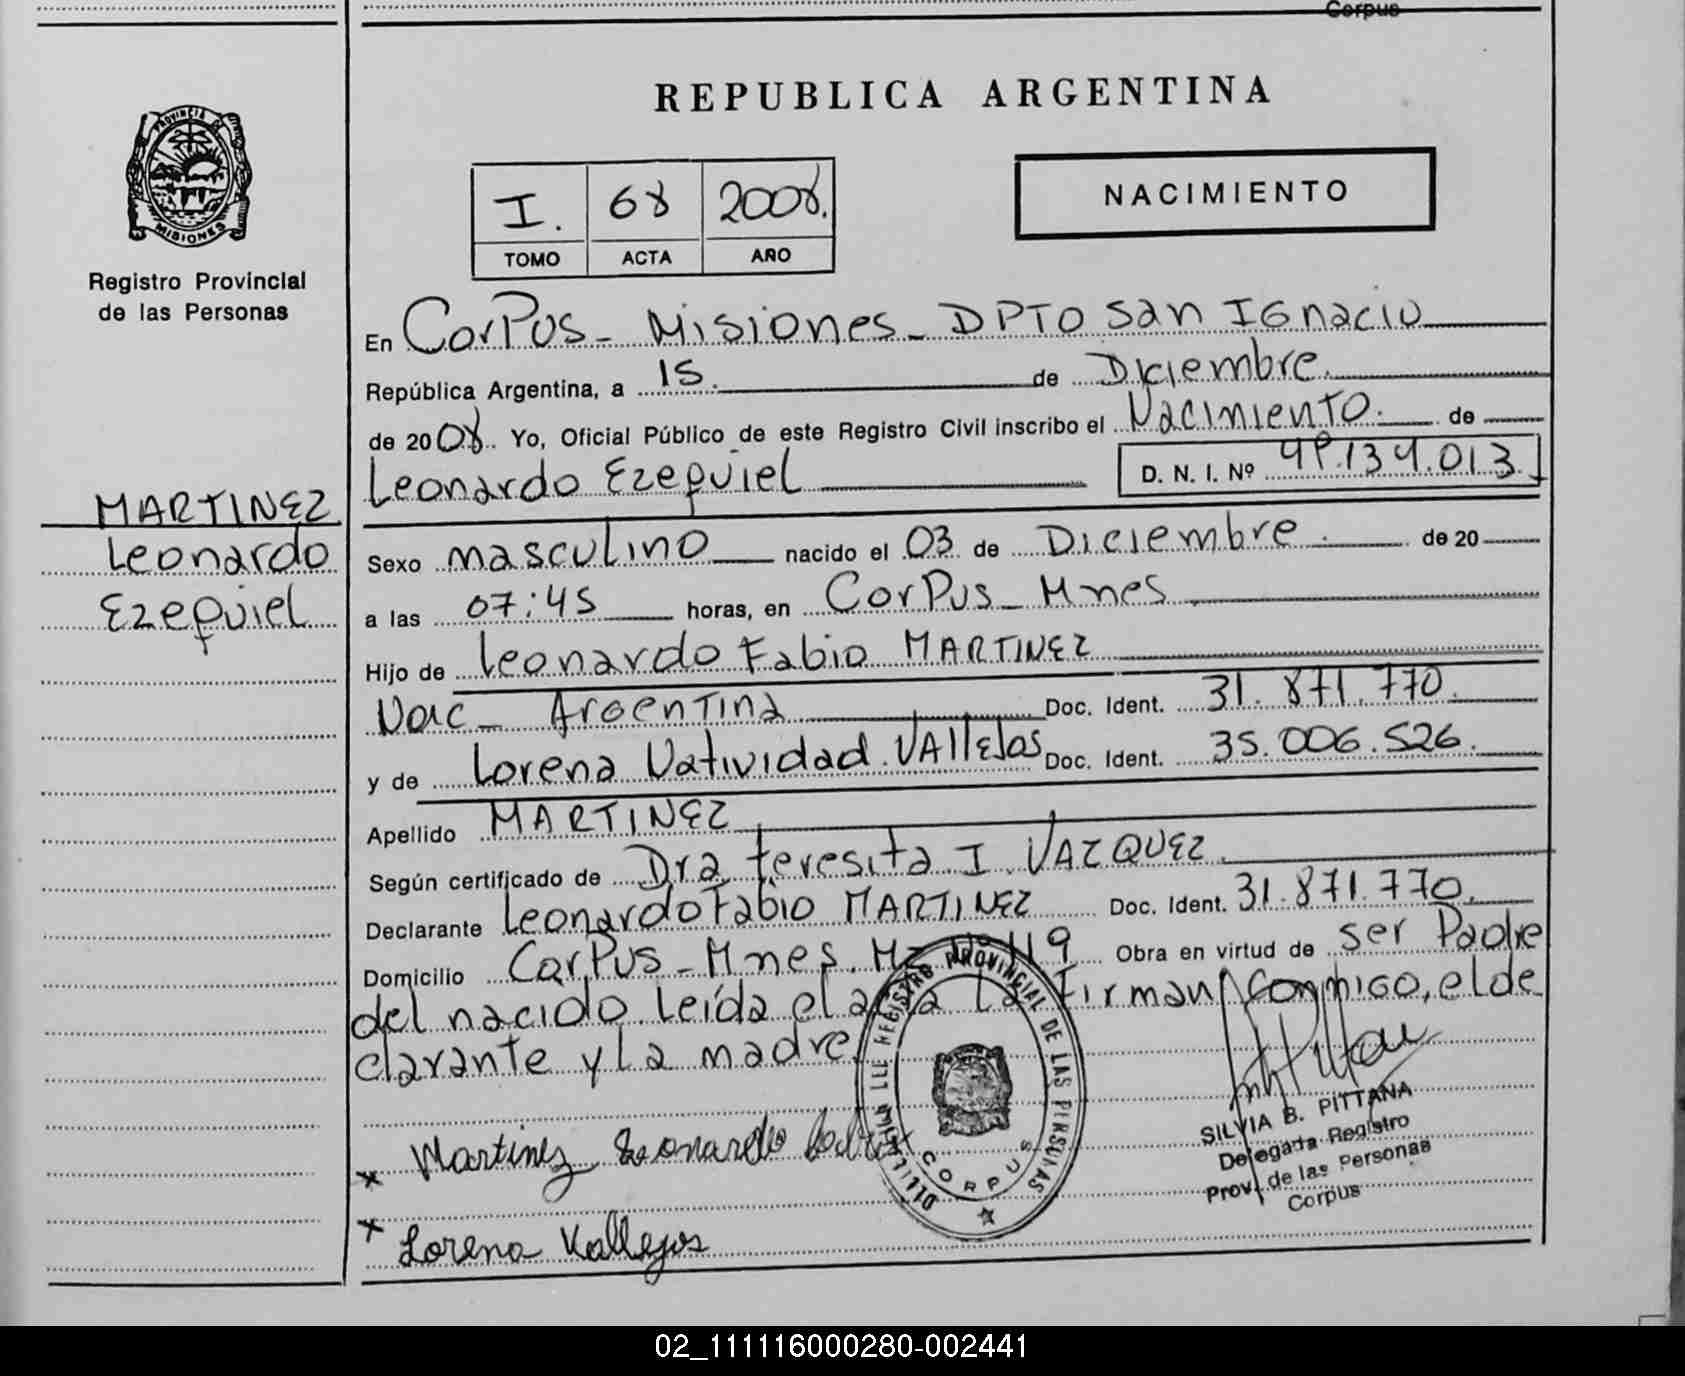 Corpus
REPUBLICA ARGENTINA
PROVINCIA DE
MISIONES
Registro Provincial
de las Personas
NACIMIENTO
I. 68 2008.
TOMO ACTA AÑO
En Corpus - Misiones - DPTO San Ignacio
República Argentina, a 15. de Diciembre.
de 2008. Yo, Oficial Público de este Registro Civil inscribo el Nacimiento. de
Leonardo Ezequiel D. N. I. Nº 49.134.013
MARTINEZ
Leonardo
Ezequiel
Sexo masculino nacido el 03 de Diciembre. de 20
a las 07:45 horas, en Corpus - Mnes
Hijo de Leonardo Fabio MARTINEZ
Nac - Argentina Doc. Ident. 31.871.770.
y de Lorena Natividad. VAllEjos Doc. Ident. 35.006.526.
Apellido MARTINEZ
Según certificado de Dra. teresita I. VAZQUEZ
Declarante Leonardo Fabio MARTINEZ Doc. Ident. 31.871.770.
Domicilio Corpus - Mnes. Mz Nº 119 Obra en virtud de ser Padre
del nacido. Leída el acta La Firman Conmigo, el de
clarante y La madre.
REGISTRO PROVINCIAL DE LAS PERSONAS
CORPUS
x Martinez Leonardo
x Lorena Vallejos
SILVIA B. PITTANA
Delegada Registro
Prov. de las Personas
Corpus
02_111116000280-002441